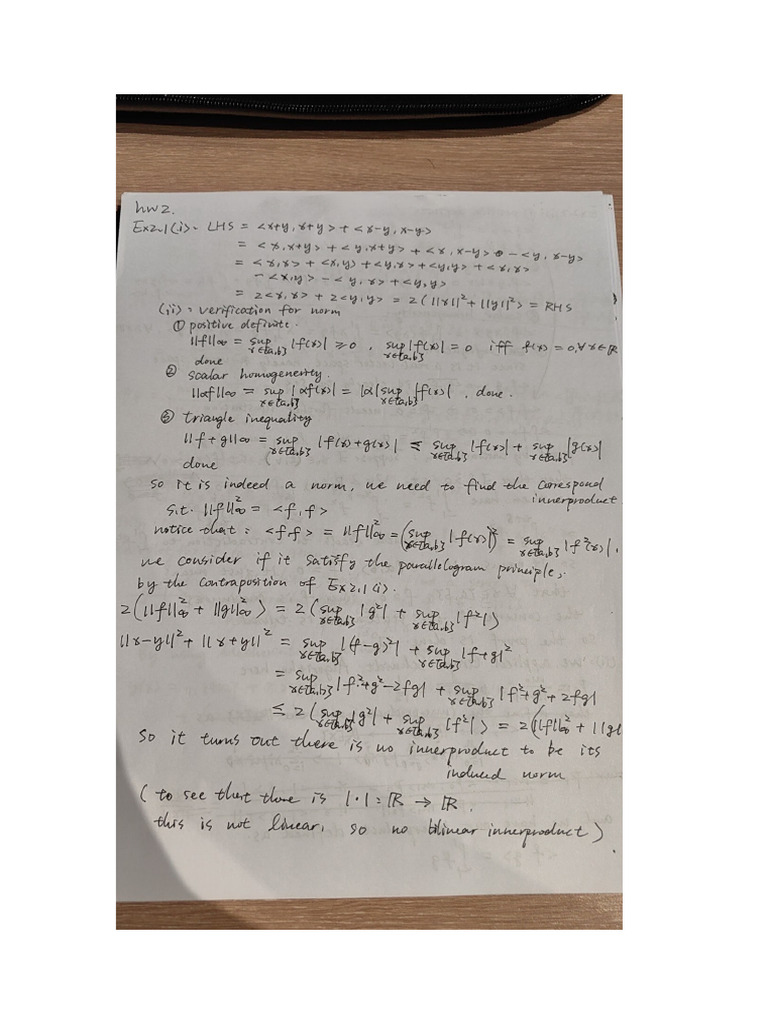 hw2.
Ex2.1(i). LHS = <x+y, x+y> + <x-y, x-y>
= <x, x+y> + <y, x+y> + <x, x-y> - <y, x-y>
= <x, x> + <x, y> + <y, x> + <y, y> + <x, x>
- <x, y> - <y, x> + <y, y>
= 2<x, x> + 2<y, y> = 2(||x||² + ||y||²) = RHS
(ii): verification for norm
① positive definite.
||f||∞ = sup_{x∈[a,b]} |f(x)| ≥ 0 , sup_{x∈[a,b]} |f(x)| = 0 iff f(x) = 0, ∀x∈ℝ
done
② scalar homogeneity.
||αf||∞ = sup_{x∈[a,b]} |αf(x)| = |α| sup_{x∈[a,b]} |f(x)| , done.
③ triangle inequality
||f+g||∞ = sup_{x∈[a,b]} |f(x)+g(x)| ≤ sup_{x∈[a,b]} |f(x)| + sup_{x∈[a,b]} |g(x)|
done
so it is indeed a norm, we need to find the correspond
innerproduct
s.t. ||f||∞² = <f, f>
notice that: <f,f> = ||f||∞² = (sup_{x∈[a,b]} |f(x)|)² = sup_{x∈[a,b]} |f²(x)|,
we consider if it satisfy the parallelogram principle,
by the contraposition of Ex2.1(i).
2(||f||∞² + ||g||∞²) = 2(sup_{x∈[a,b]} |g²| + sup_{x∈[a,b]} |f²|)
||x-y||² + ||x+y||² = sup_{x∈[a,b]} |(f-g)²| + sup_{x∈[a,b]} |f+g|²
= sup_{x∈[a,b]} |f²+g²-2fg| + sup_{x∈[a,b]} |f²+g²+2fg|
≤ 2(sup_{x∈[a,b]} |g²| + sup_{x∈[a,b]} |f²|) = 2(||f||∞² + ||g|
So it turns out there is no innerproduct to be its
induced norm
(to see that there is |·|: ℝ → ℝ.
this is not linear, so no bilinear innerproduct)